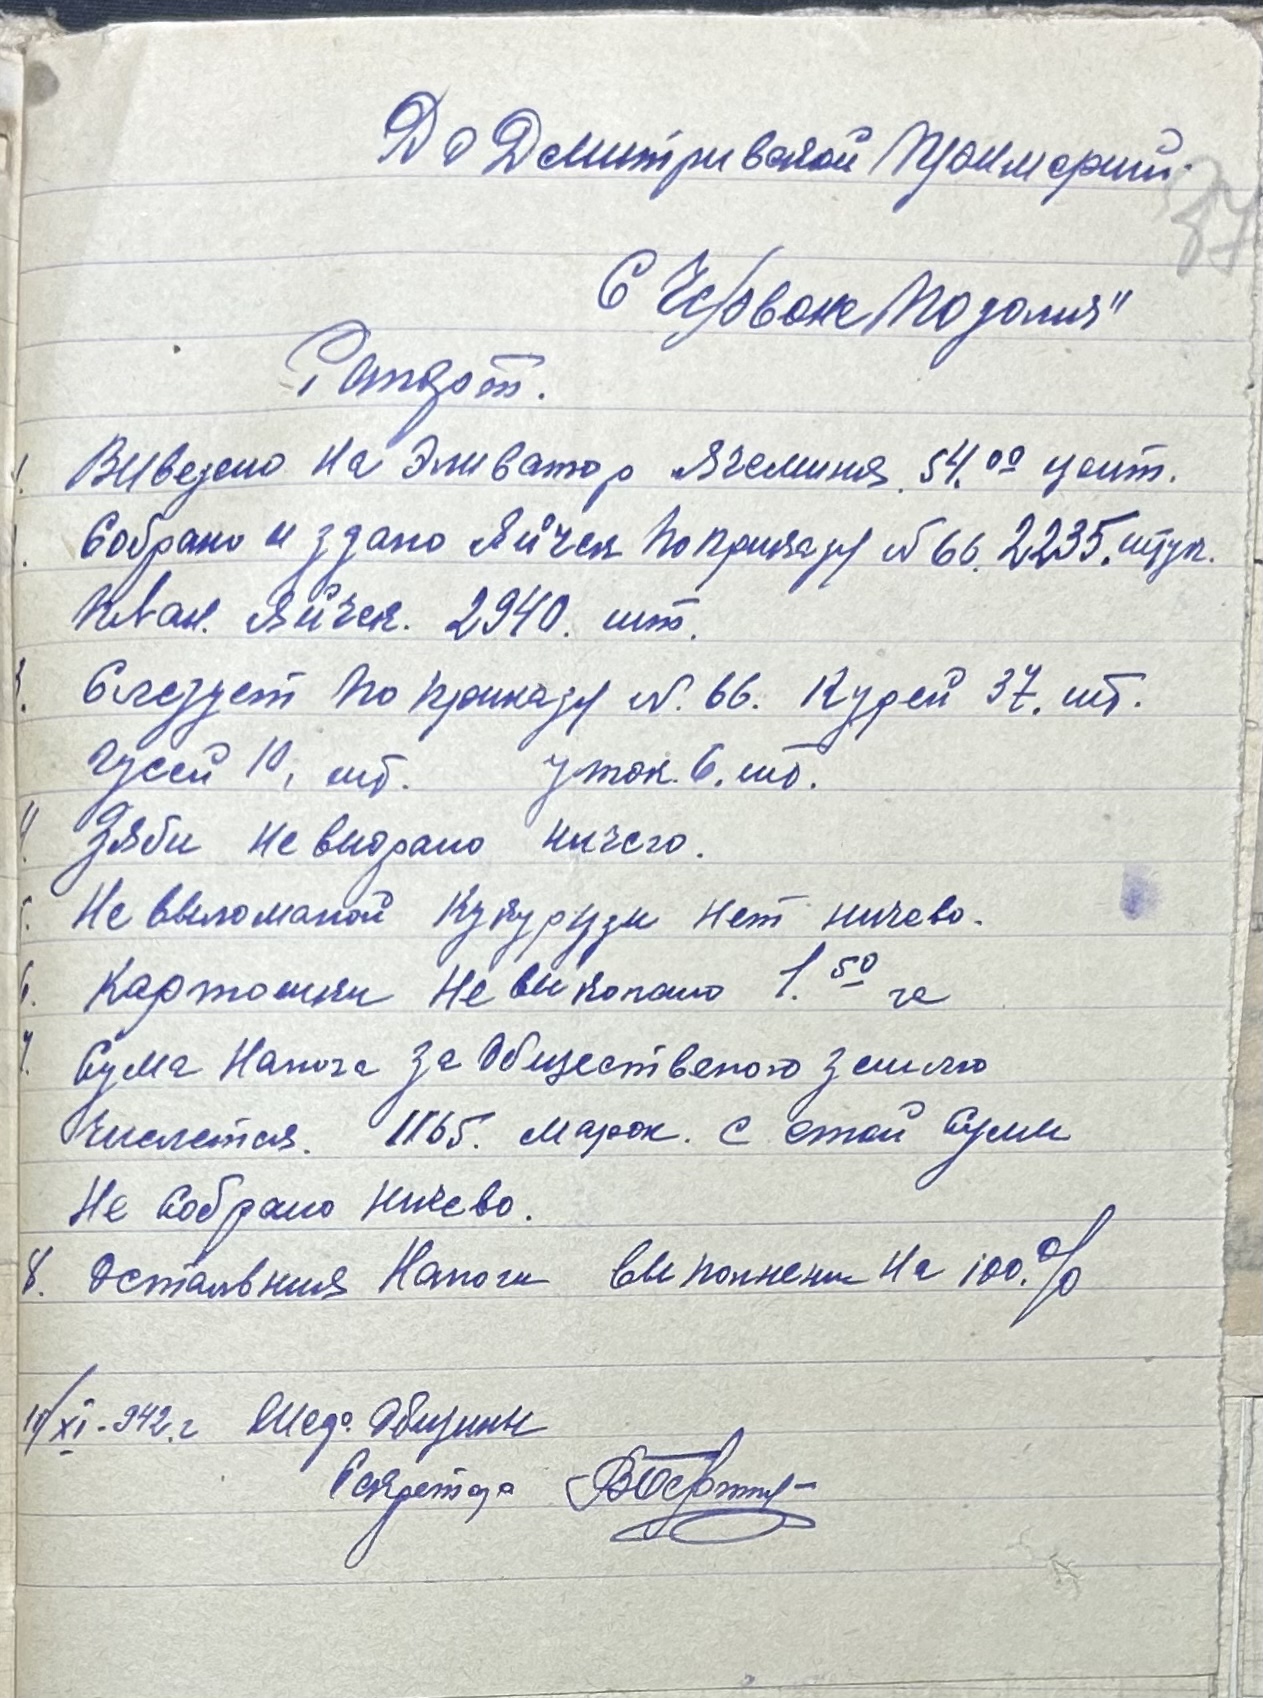 До Демитривской Примарии
87
С Червоне Подолия"
Рапорт.
1. Вивезено на Эливатор Ячеминя 54.00 цент.
Собрано и здано Яйчек по приказу № 66. 2235. штук.
План. Яйчек. 2940. шт.
3. Следует по приказу №. 66. Курей 37. шт.
гусей 10, шт. уток. 6. шт.
4. Зяби не виорано ничего.
5. Не выломаной Кукурузи нет ничево.
6. Картошки не викопано 1.50 га
7. Сума Налога за Общественою землю
числется. 1165. марок. с етой Суми
Не Собрано ничево.
8. Остальния Налоги виполнени на 100.%
10/XI-942.г Шеф. Общини
Секретар